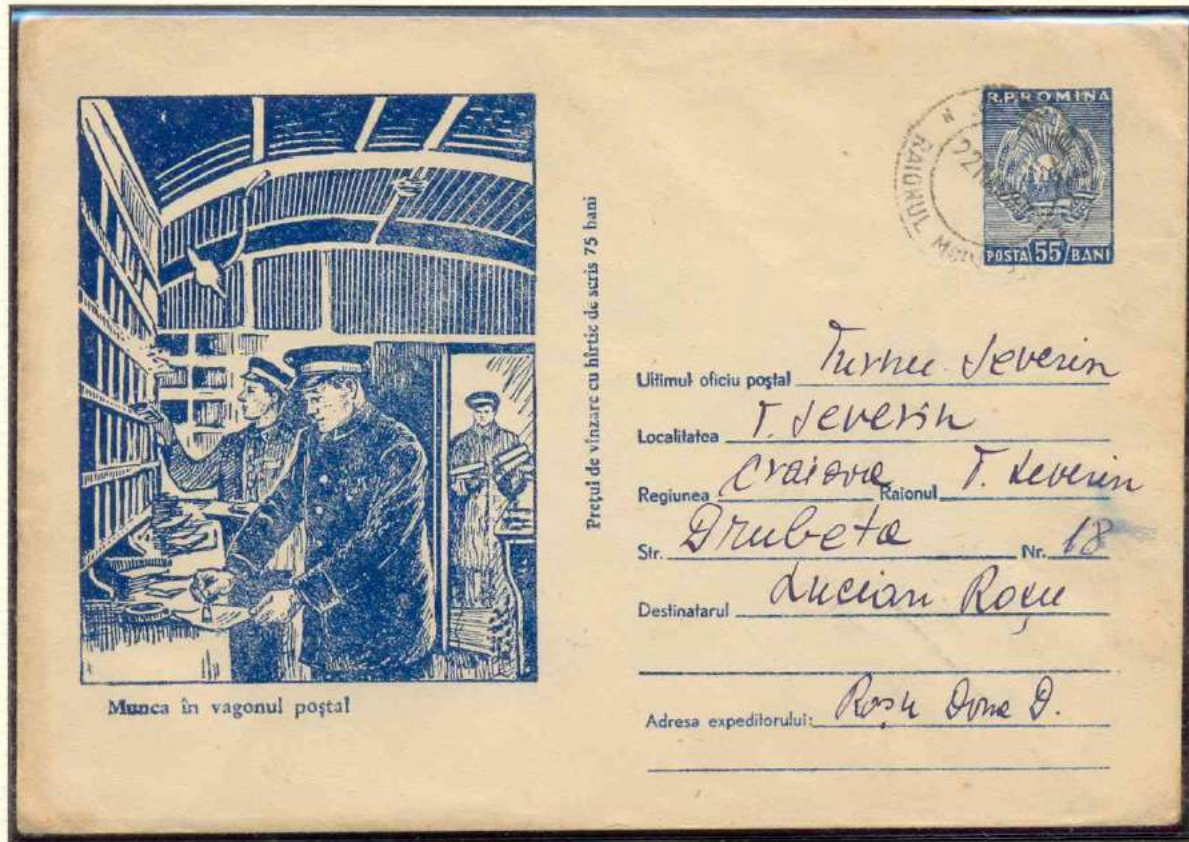 R.P.ROMINA
POSTA 55 BANI
RAIONUL
Prețul de vînzare cu hîrtie de scris 75 bani
Munca în vagonul poștal
Ultimul oficiu poștal Turnu Severin
Localitatea T. Severin
Regiunea Craiova Raionul T. Severin
Str. Drubeta Nr. 18
Destinatarul Lucian Roșu
Adresa expeditorului: Roșu D.